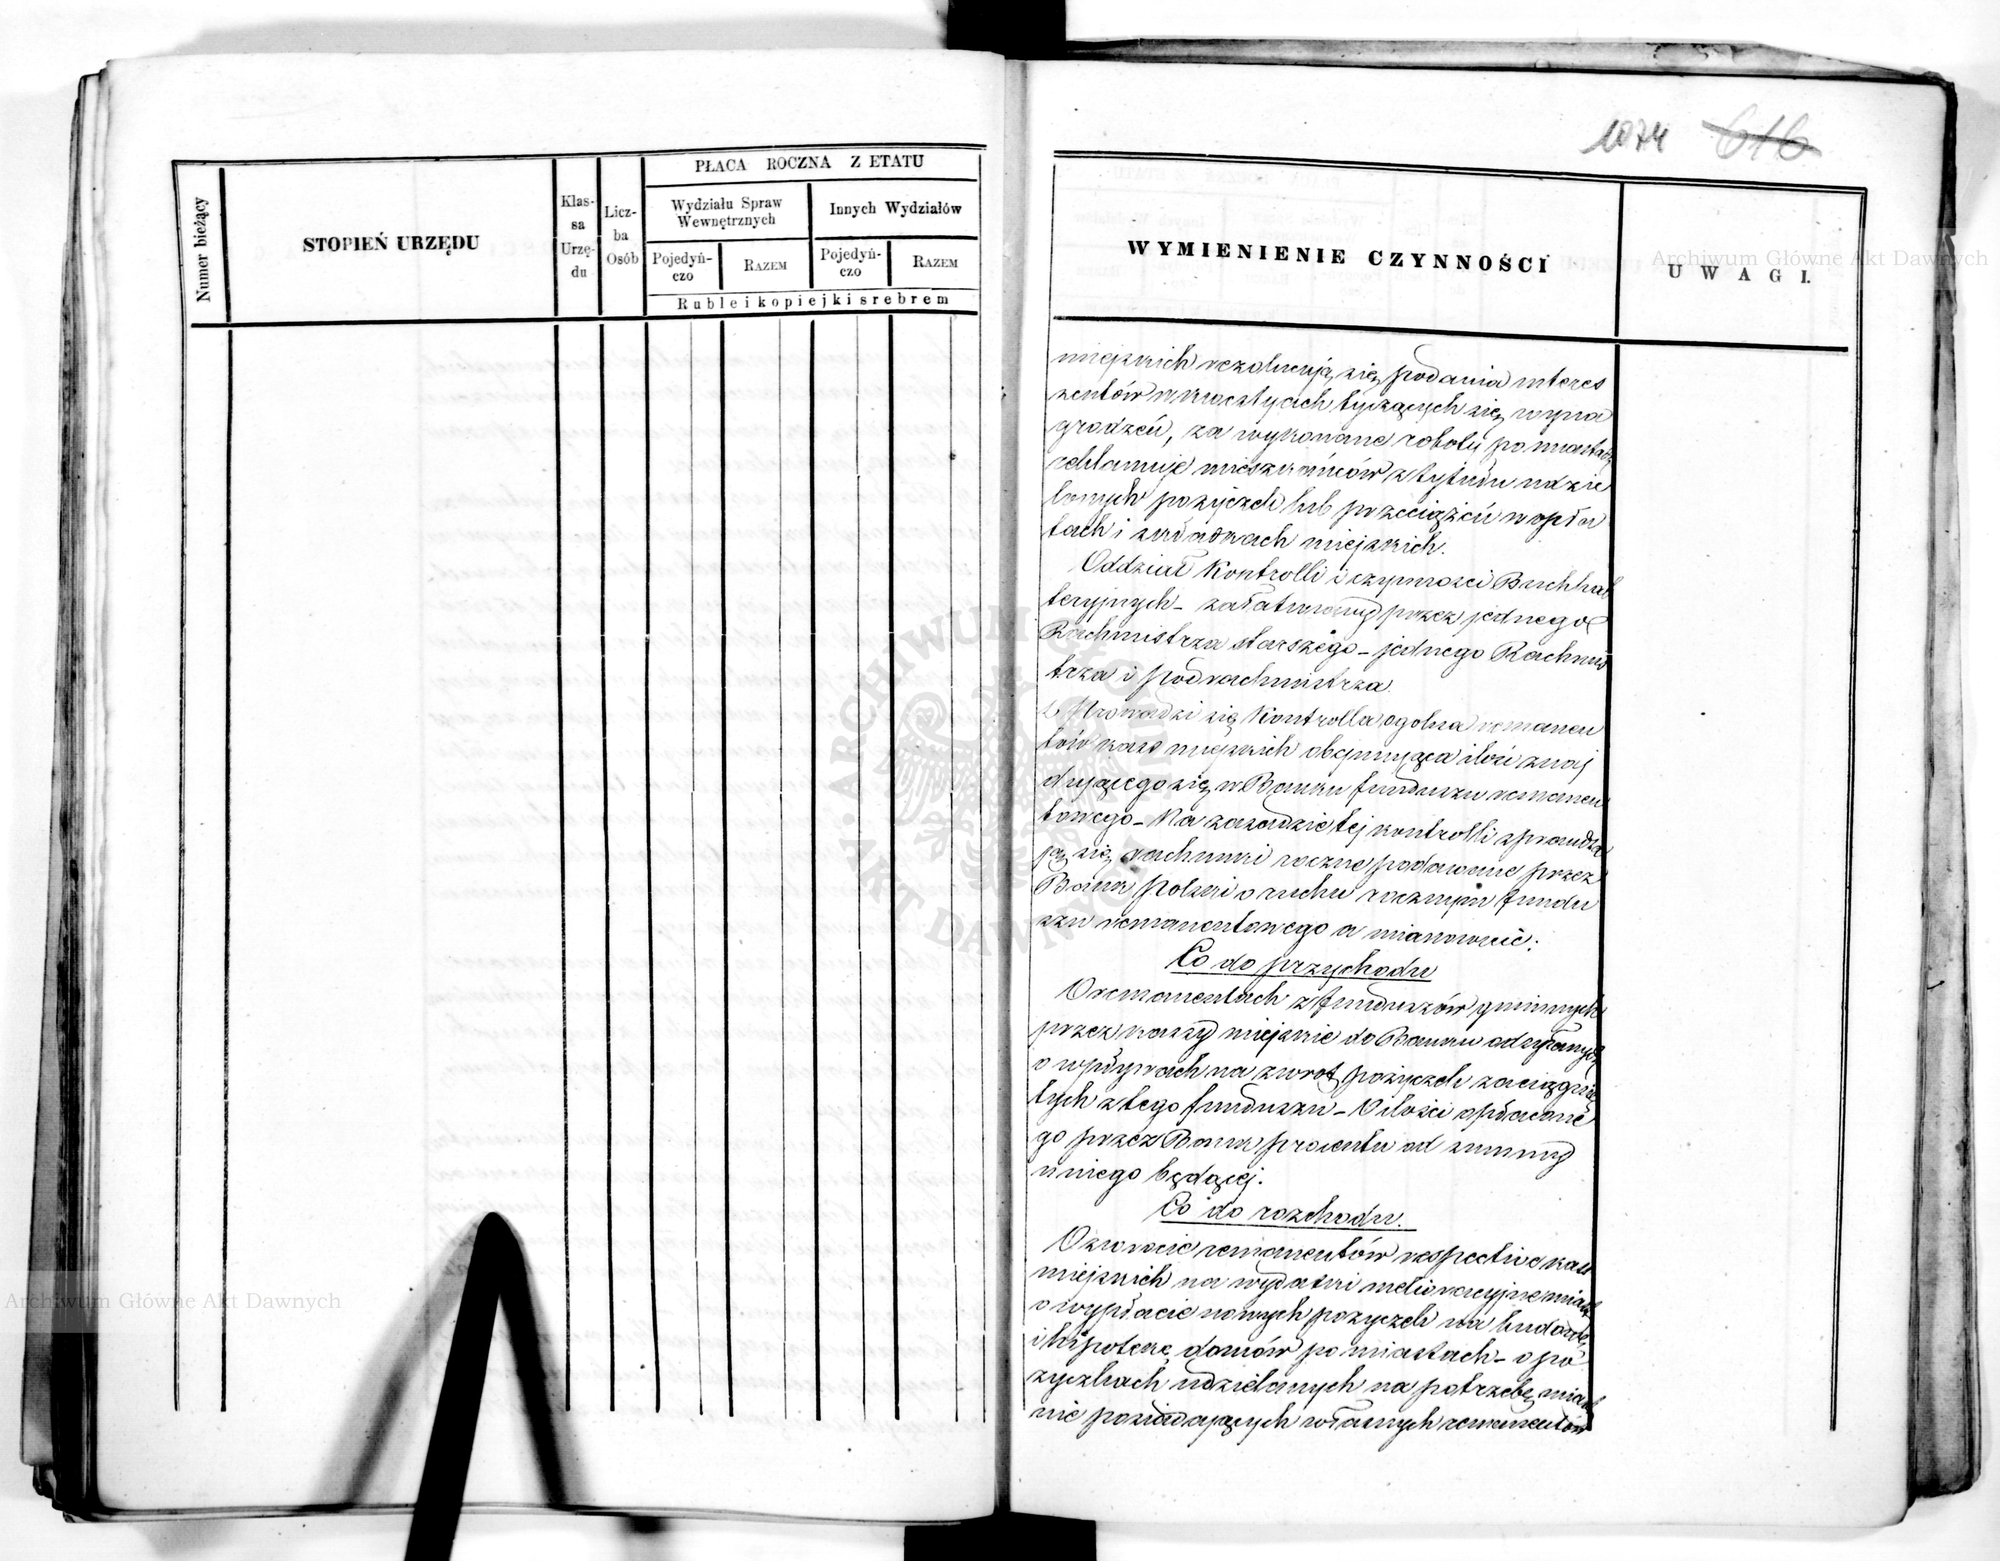 PŁACA ROCZNA Z ETATU
Numer bieżący
STOPIEŃ URZĘDU
Klas-
sa
Urzę-
du
Licz-
ba
Osób
Wydziału Spraw
Wewnętrznych
Innych Wydziałów
Pojedyń-
czo
RAZEM
Pojedyń-
czo
RAZEM
Ruble i kopiejki srebrem
1074 616
WYMIENIENIE CZYNNOŚCI
UWAGI.
miejskich rezolwują się podania interes
sentów w kwestyach tyczących się wyna
grodzeń, za wykonane roboty po miastach
reklamuje mieszkańców z tytułu udzie
lonych pożyczek lub przeciążeń w opła
tach i składkach miejskich.
Oddział Kontrolli i czynności Buchhal
teryjnych - załatwiany przez jednego
Rachmistrza starszego - jednego Rachmis
trza i Podrachmistrza.
Prowadzi się Kontrolla ogólna remanen
tów kass miejskich obejmująca ilość znaj
dującego się w Banku funduszu remanen
towego - Na zasadzie tej kontrolli sprawdza
ją się rachunki roczne podawane przez
Bank Polski o ruchu rocznym fundu
szu remanentowego a mianowicie:
Co do przychodu
O remanentach z funduszów gminnych
przez kassy miejskie do Banku odsyłanych
o wpływach na zwrot pożyczek zaciągnię
tych z tego funduszu - O ilości opłacone
go przez Bank procentu od summy
u niego będącej.
Co do rozchodu.
O zwrocie remanentów respective kass
miejskich na wydatki melioracyjne miast
o wypłacie nowych pożyczek na budowle
i hipotekę domów po miastach - o po
życzkach udzielanych na potrzebę miast
nie posiadających własnych remanentów
Archiwum Główne Akt Dawnych
Archiwum Główne Akt Dawnych
ARCHIWUM GŁÓWNE AKT DAWNYCH